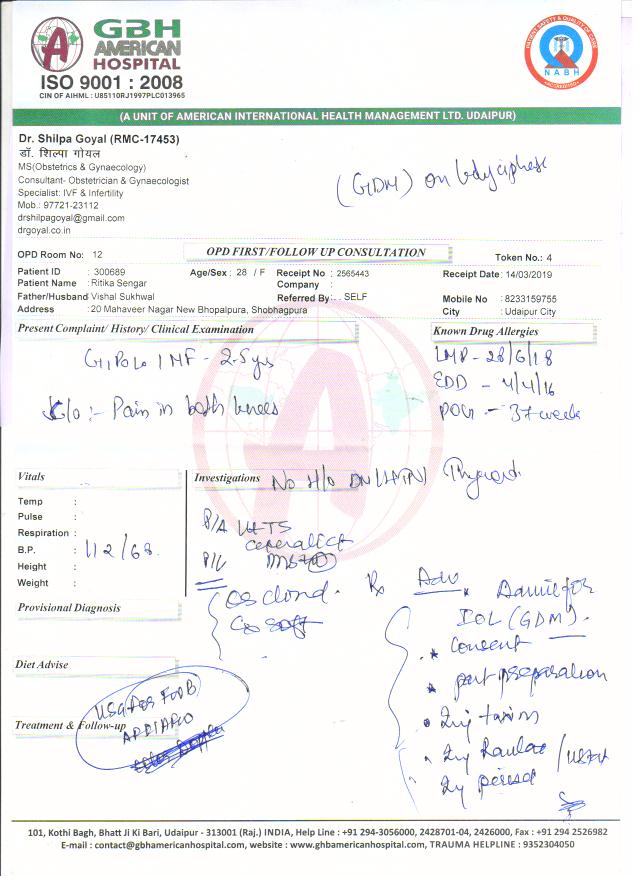 GBH
AMERICAN
HOSPITAL
ISO 9001 : 2008
CIN OF AIHML : U85110RJ1997PLC013965
PATIENT SAFETY & QUALITY OF CARE
NABH
(A UNIT OF AMERICAN INTERNATIONAL HEALTH MANAGEMENT LTD. UDAIPUR)
Dr. Shilpa Goyal (RMC-17453)
डॉ. शिल्पा गोयल
MS(Obstetrics & Gynaecology)
Consultant- Obstetrician & Gynaecologist
Specialist: IVF & Infertility
Mob.: 97721-23112
drshilpagoyal@gmail.com
drgoyal.co.in
(GDM) on
OPD Room No: 12
OPD FIRST/FOLLOW UP CONSULTATION
Token No.: 4
Patient ID : 300689 Age/Sex : 28 / F Receipt No : 2565443 Receipt Date: 14/03/2019
Patient Name : Ritika Sengar Company :
Father/Husband Vishal Sukhwal Referred By: . SELF Mobile No : 8233159755
Address : 20 Mahaveer Nagar New Bhopalpura, Shobhagpura City : Udaipur City
Present Complaint/ History/ Clinical Examination Known Drug Allergies
G1P0L0 / MF - 2.5ys
LMP - 28/6/18
EDD - 4/4/16
POG - 37 week
C/o :- Pain in both knees
Vitals
Investigations No H/o DM/HTN/ Thyroid
Temp :
Pulse :
Respiration :
B.P. : 112/68
Height :
Weight :
P/A
cephalic
P/V
Os closed
Cx soft
Rx Adv
Admit for
IOL (GDM).
* Consent
* part preparation
Inj
Inj
Inj
Provisional Diagnosis
Diet Advise
USG for FOOB
Treatment & Follow-up
101, Kothi Bagh, Bhatt Ji Ki Bari, Udaipur - 313001 (Raj.) INDIA, Help Line : +91 294-3056000, 2428701-04, 2426000, Fax : +91 294 2526982
E-mail : contact@gbhamericanhospital.com, website : www.gbhamericanhospital.com, TRAUMA HELPLINE : 9352304050